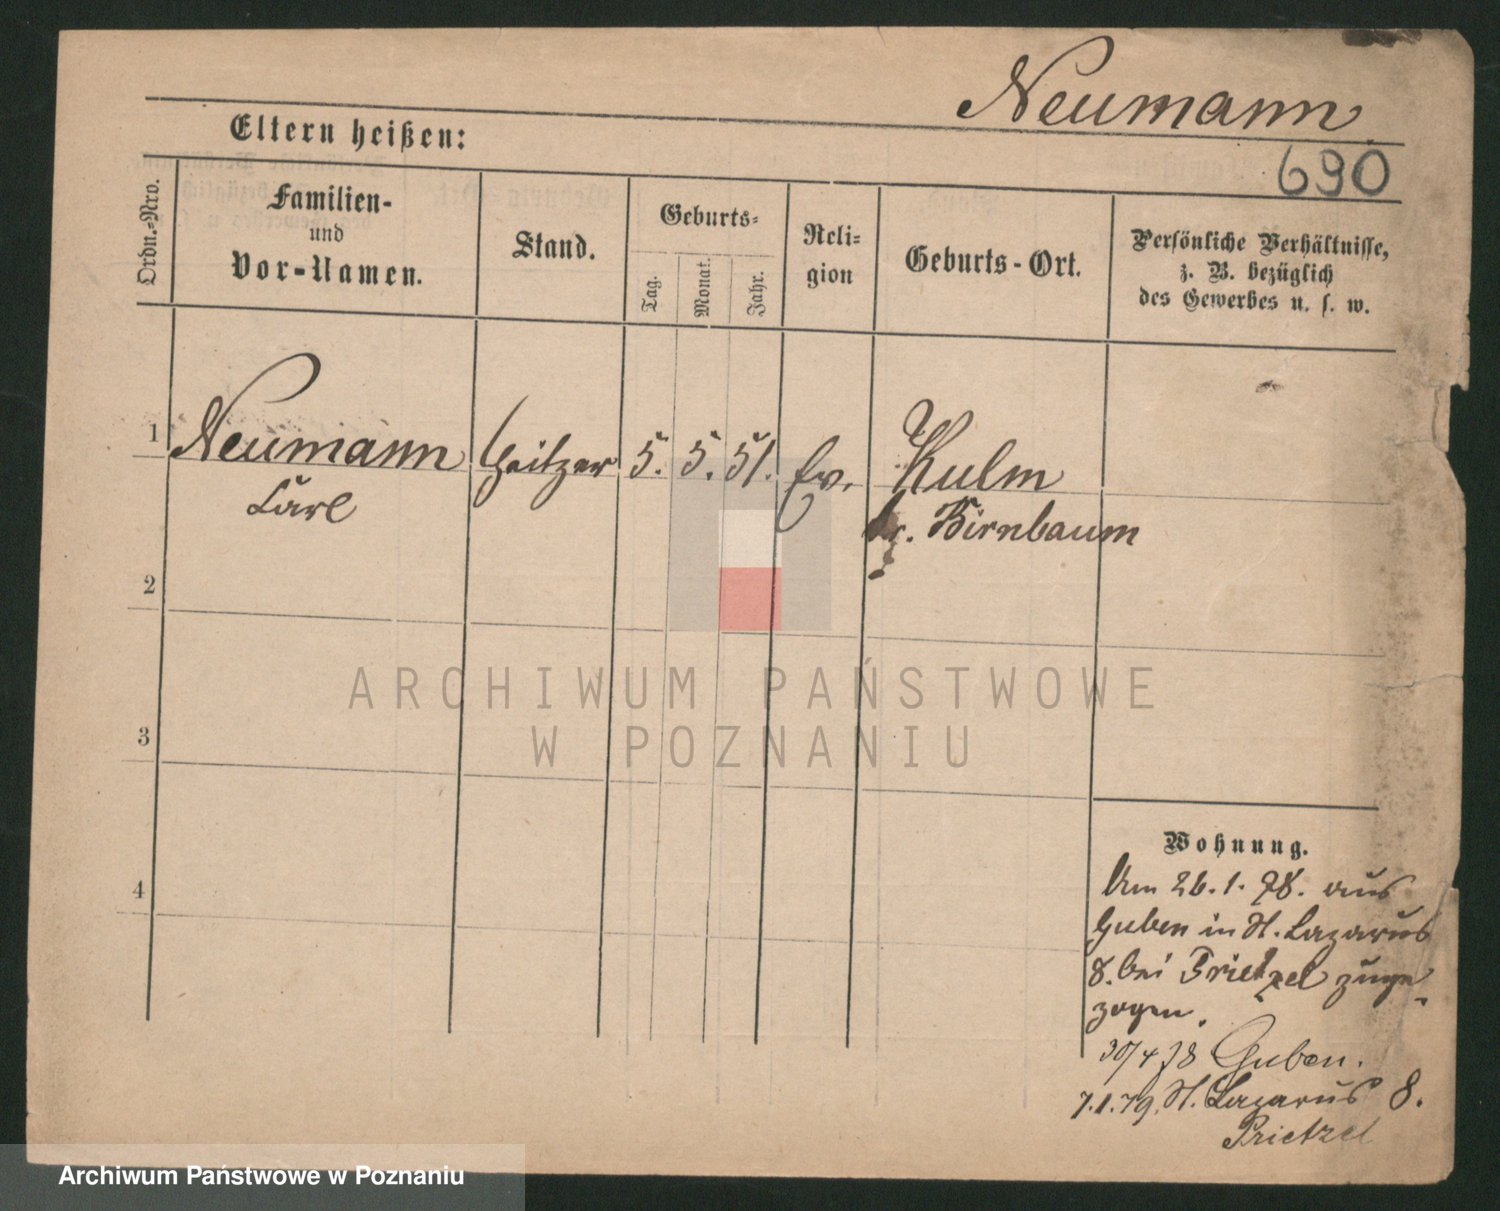 Neumann
690
Eltern heißen:
Ordn.-Nro.
Familien-
und
Vor-Namen.
Stand.
Geburts-
Tag.
Monat.
Jahr.
Reli-
gion
Geburts-Ort.
Persönliche Verhältnisse,
z. B. bezüglich
des Gewerbes u. s. w.
1
Neumann
Carl
Heitzer
5. 5. 51.
Ev.
Kulm
Kr. Birnbaum
2
3
4
ARCHIWUM PAŃSTWOWE
W POZNANIU
Wohnung.
Am 26.1.78. aus
Guben in St. Lazarus
8. bei Prietzel zuge-
zogen.
30/4 78 Guben.
7.1.79. St. Lazarus 8.
Prietzel
Archiwum Państwowe w Poznaniu